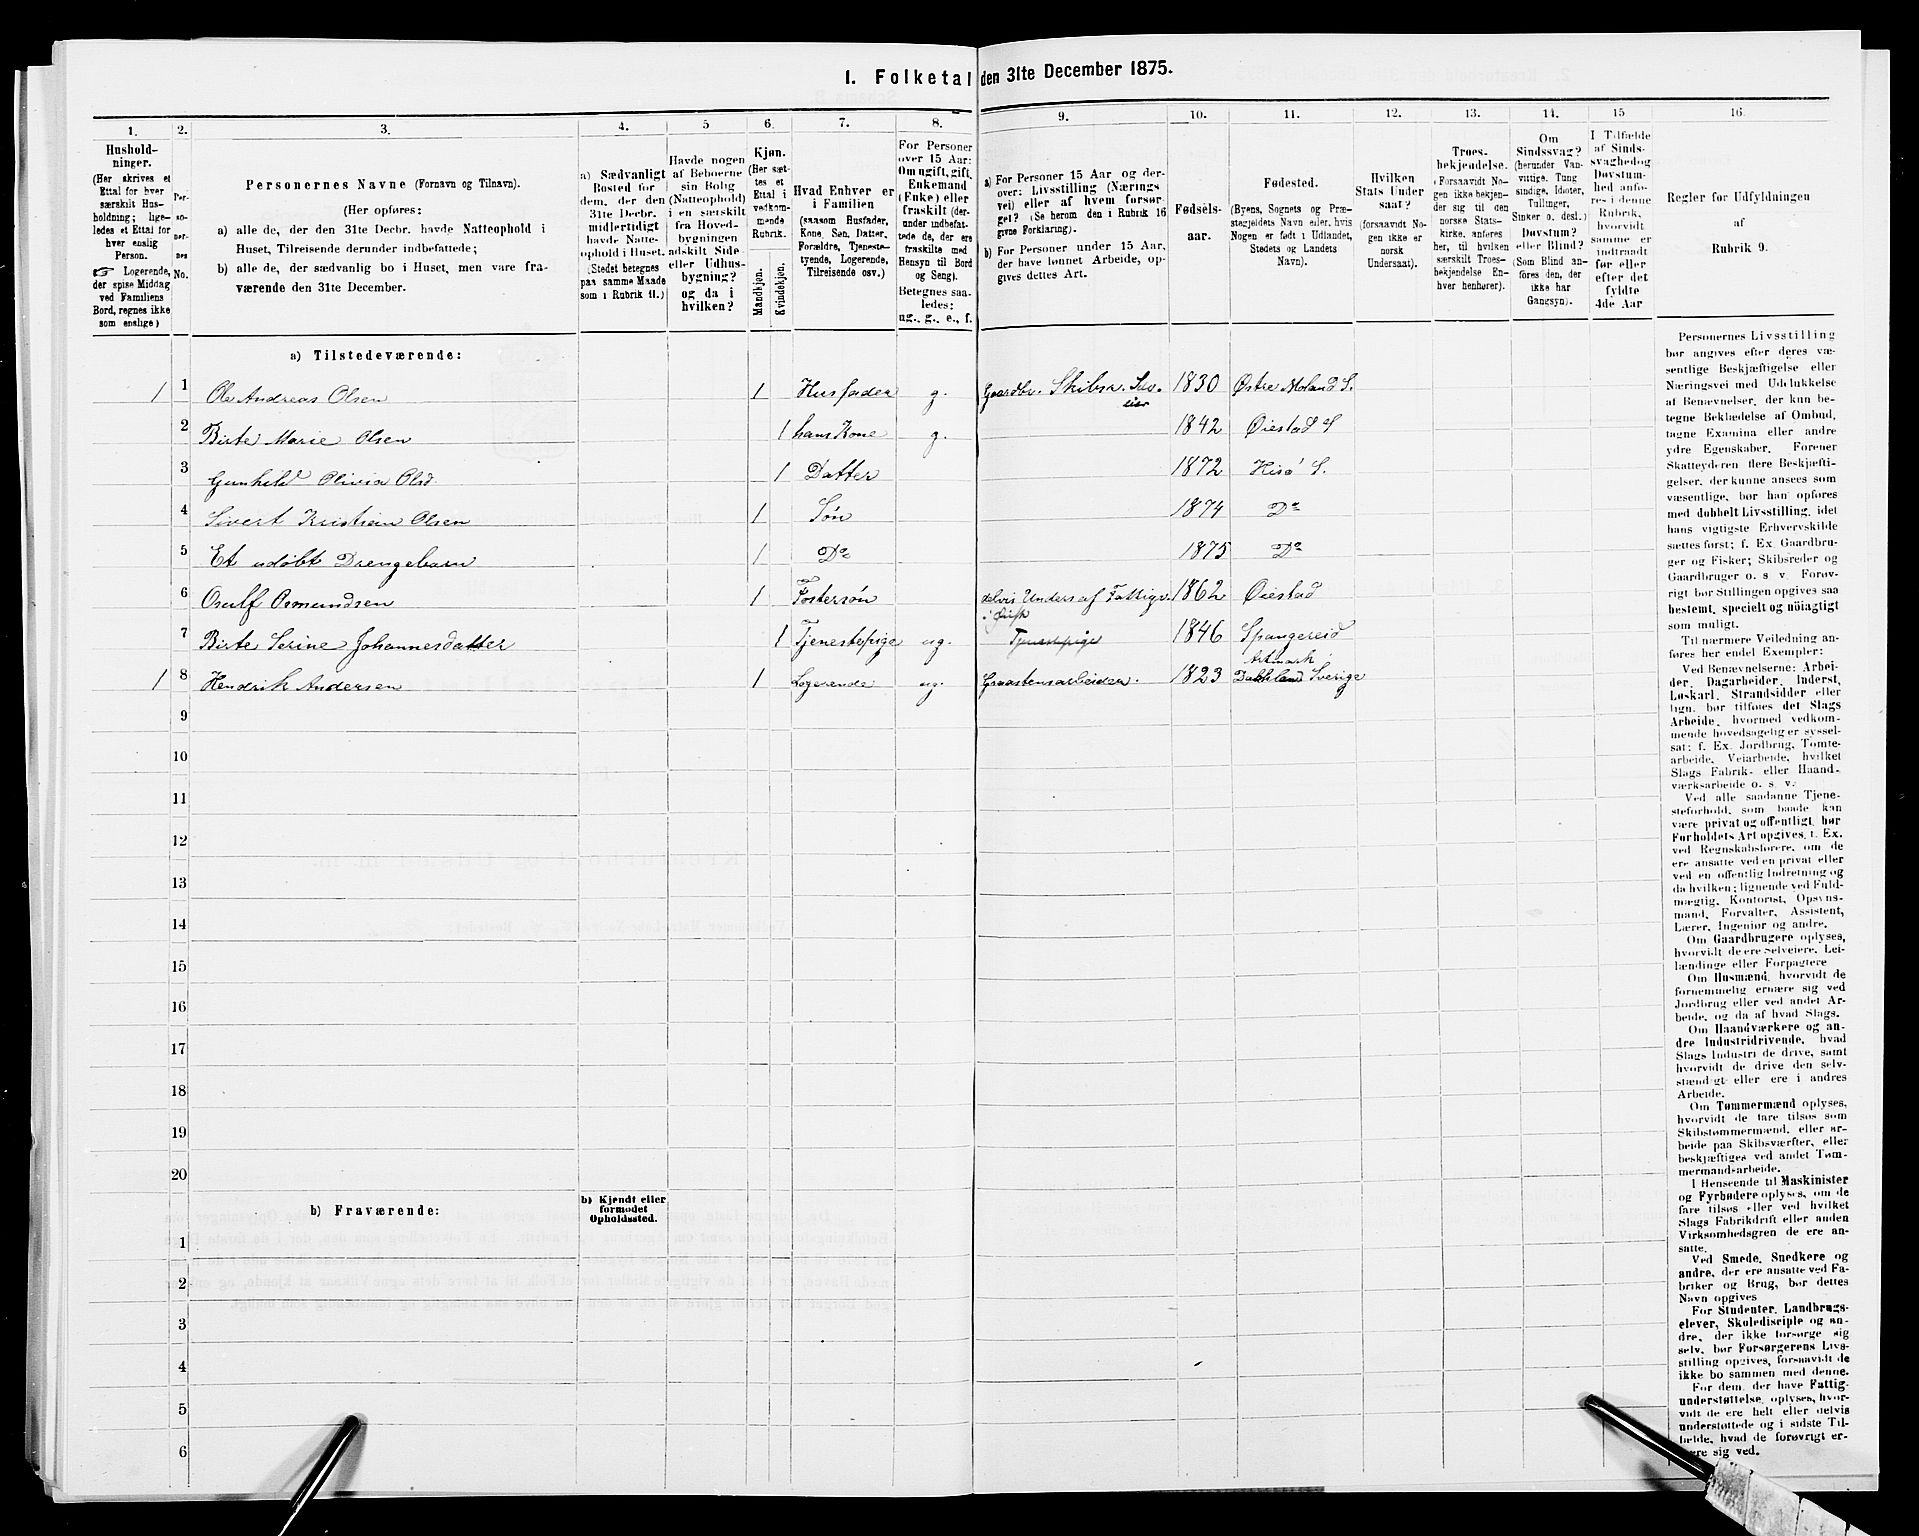 1. Folketal den 31te December 1875.
1. 2. 3. 4. 5 6. 7. 8. 9. 10. 11. 12. 13. 14. 15 16.
Hushold-
ninger.
(Her skrives et
Ettal for hver
særskilt Hus-
holdning; lige-
ledes et Ettal for
hver enslig
Person.
☞ Logerende,
der spise Middag
ved Familiens
Bord, regnes ikke
som enslige)
Per-
so-
ner-
nes
No.
Personernes Navne (Fornavn og Tilnavn).
(Her opføres:
a) alle de, der den 31te Decbr. havde Natteophold i
Huset, Tilreisende derunder indbefattede;
b) alle de, der sædvanlig bo i Huset, men vare fra-
værende den 31te December.
a) Sædvanligt
Bosted for
dem, der den
31te Decbr.
midlertidigt
havde Natte-
ophold i Huset.
(Stedet betegnes
paa samme Maade
som i Rubrik 11.)
Havde nogen
af Beboerne
sin Bolig
(Natteophold)
i en særskilt
fra Hoved-
bygningen
adskilt Side-
eller Udhus-
bygning?
og da i
hvilken?
Kjøn.
(Her sæt-
tes et
Ettal i
vedkom-
mende
Rubrik.
Mandkjøn.
Kvindekjøn.
Hvad Enhver er
i Familien
(saasom Husfader,
Kone, Søn, Datter,
Forældre, Tjeneste-
tyende, Logerende,
Tilreisende osv.)
For Personer
over 15 Aar:
Om ugift, gift,
Enkemand
(Enke) eller
fraskilt (der-
under indbefat-
tede de, der ere
fraskilte med
Hensyn til Bord
og Seng).
Betegnes saa-
ledes:
ug., g., e., f.
a) For Personer 15 Aar og der-
over: Livsstilling (Nærings-
vei) eller af hvem forsør-
get? (Se herom den i Rubrik 16
givne Forklaring).
b) For Personer under 15 Aar,
der have lønnet Arbeide, op-
gives dettes Art.
Fødsels-
aar.
Fødested.
(Byens, Sognets og Præ-
stegjeldets Navn eller, hvis
Nogen er født i Udlandet,
Stedets og Landets
Navn).
Hvilken
Stats Under
saat?
(forsaavidt No-
gen ikke er
norsk
Undersaat).
Troes-
bekjendelse.
(Forsaavidt No-
gen ikke bekjen-
der sig til den
norske Stats-
kirke, anføres
her, til hvilken
særskilt Troes-
bekjendelse En-
hver henhører).
Om
Sindssvag?
(herunder Van-
vittige, Tung
sindige, Idioter,
Tullinger,
Sinker o. desl.)
Døvstum?
eller Blind?
(Som Blind an-
føres den, der
ikke har
Gangsyn).
I Tilfælde
af Sinds-
svaghed og
Døvstum-
hed anfø-
res i denne
Rubrik,
hvorvidt
samme er
indtraadt
før eller
efter det
fyldte
4de Aar
Regler for Udfyldningen
af
Rubrik 9.
a) Tilstedeværende:
1 1 Ole Andreas Olsen 1 Husfader g. Gaardbr. Skibsr. Selv- 1830 Østre Moland S.
eier
2 Birte Marie Olsen 1 hans Kone g. 1842 Øiestad S
3 Gunhild Olivia Olsd. 1 Datter 1872 Hisø S.
4 Sivert Kristian Olsen 1 Søn 1874 Do
5 Et udøbt Drengebarn 1 Do 1875 Do
6 Osulf Osmundsen 1 Fostersøn delvis Unders af Fattigv. 1862 Øiestad
i
7 Birte Serine Johannesdatter 1 Tjenestepige ug. Tjenestepige 1846 Spangereid
1 8 Hendrik Andersen 1 Logerende ug. Graastensarbeider. 1823 Sverige
9
10
11
12
13
14
15
16
17
18
19
20
b) Fraværende:
b) Kjendt eller
formodet
Opholdssted.
1
2
3
4
5
6
Personernes Livsstilling
bør angives efter deres væ-
sentlige Beskjæftigelse eller
Næringsvei med Udelukkelse
af Benævnelser, der kun be-
tegne Beklædelse af Ombud,
tagne Examina eller andre
ydre Egenskaber. Forener
Skatteyderen flere Beskjæfti-
gelser, der kunne ansees som
væsentlige, bør han opføres
med dobbelt Livsstilling, idet
hans vigtigste Erhvervskilde
sættes først; f. Ex. Gaardbru-
ger og Fisker; Skibsreder og
Gaardbruger o. s v. Forøv-
rigt bør Stillingen opgives saa
bestemt, specielt og nöiagtigt
som muligt.
Til nærmere Veiledning an-
føres her endel Exempler:
Ved Benævnelserne: Arbei-
der, Dagarbeider, Inderst,
Løskarl, Strandsidder eller
lign. bør tilføies det Slags
Arbeide, hvormed vedkom-
mende hovedsagelig er syssel-
sat; f. Ex. Jordbrug, Tomte-
arbeide, Veiarbeide, hvilket
Slags Fabrik- eller Haand-
værksarbeide o. s. v.
Ved alle saadanne Tjene-
steforhold, som baade kan
være privat og offentligt, bør
Forholdets Art opgives, f. Ex.
ved Regnskabsførere, om de
ere ansatte ved en privat eller
ved en offentlig Indretning og
da hvilken; lignende ved Fuld-
mægtig, Kontorist, Opsyns-
mand, Forvalter, Assistent,
Lærer, Ingeniør og andre.
Om Gaardbrugere oplyses,
hvorvidt de ere Selveiere, Lei-
lændinge eller Forpagtere
Om Husmænd, hvorvidt de
fornemmelig ernære sig ved
Jordbrug eller ved andet Ar-
beide, og da af hvad Slags.
Om Haandværkere og an-
dre Industridrivende, hvad
Slags Industri de drive, samt
hvorvidt de drive den selv-
stændigt eller ere i andres
Arbeide.
Om Tømmermænd oplyses,
hvorvidt de fare tilsøs som
Skibstømmermænd, eller ar-
beide paa Skibsværfter, eller
beskjæftiges ved andet Tøm-
mermandsarbeide.
I Henseende til Maskinister
og Fyrbødere oplyses, om de
fare tilsøs eller ved hvilket
Slags Fabrikdrift eller anden
Virksomhedsgren de ere an-
satte.
Ved Smede, Snedkere og
andre, der ere ansatte ved Fa-
briker og Brug, bør dettes
Navn opgives
For Studenter, Landbrugs-
elever, Skoledisciple og an-
dre, der ikke forsørge sig
selv, bør Forsørgerens Livs-
stilling opgives, forsaavidt de
ikke bo sammen med denne.
For dem, der have Fattig-
understøttelse, oplyses, hvor-
vidt de ere helt eller delvis
understøttede og i sidste Til-
fælde, hvad de forøvrigt er-
nære sig ved.